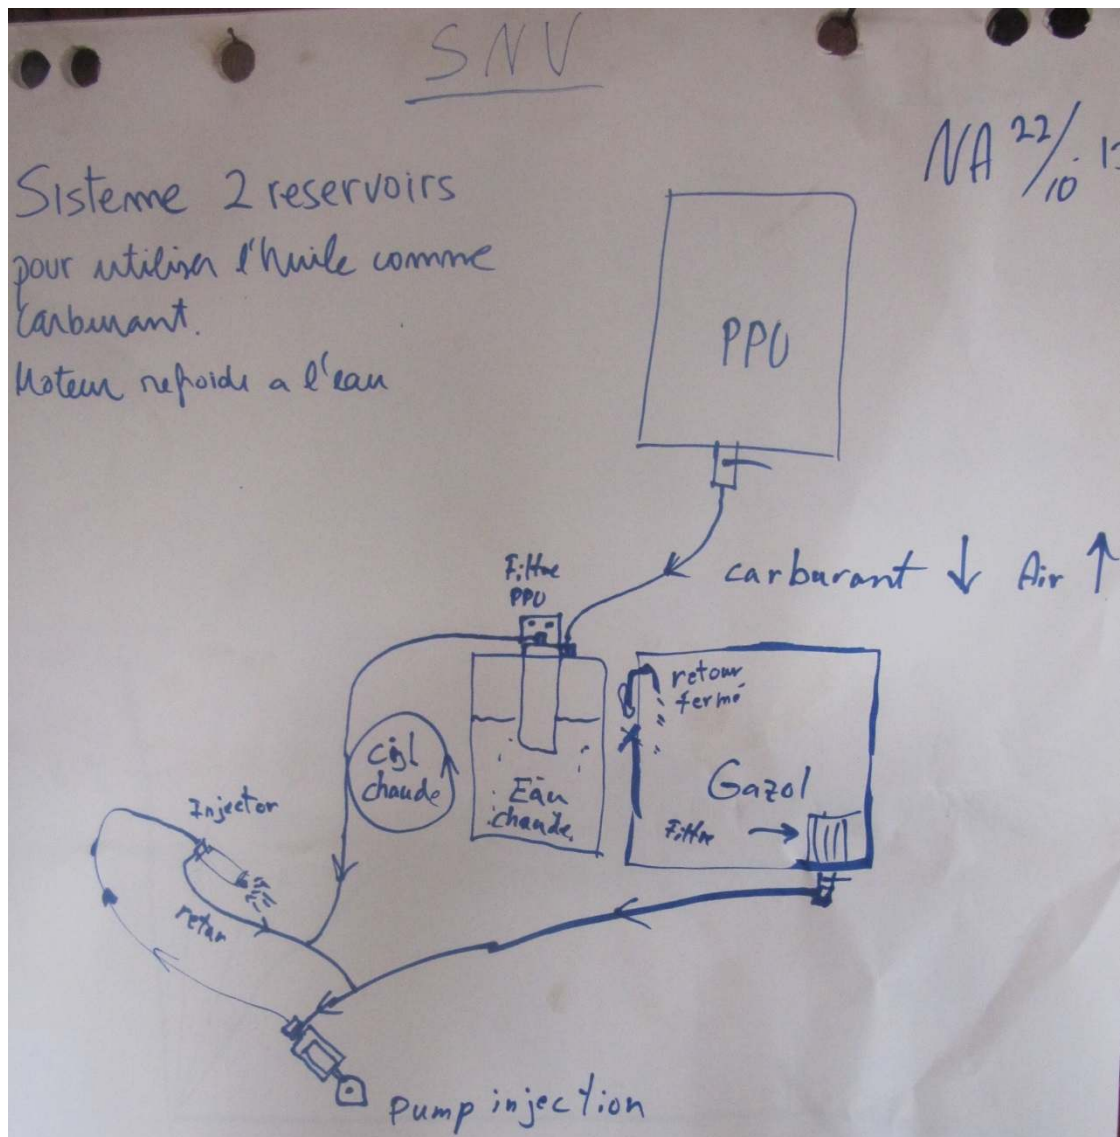 SNV
NA 22/10
Sisteme 2 reservoirs
pour utiliser l'huile comme
carburant.
Moteur refroidi a l'eau
PPO
carburant ↓ Air ↑
Filtre
PPO
retour
fermé
chaude
Eau
chaude
Gazol
Filtre
Injector
retur
Pump injection